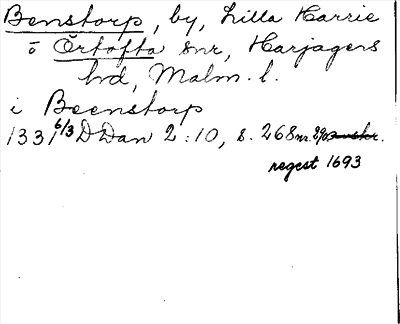 Benstorp, by, Lilla Harrie
o Örtofta snr, Harjagers
hd, Malm. l.
i Beenstorp
1331 6/3 DDan 2:10, s. 268 nr. 290
regest 1693